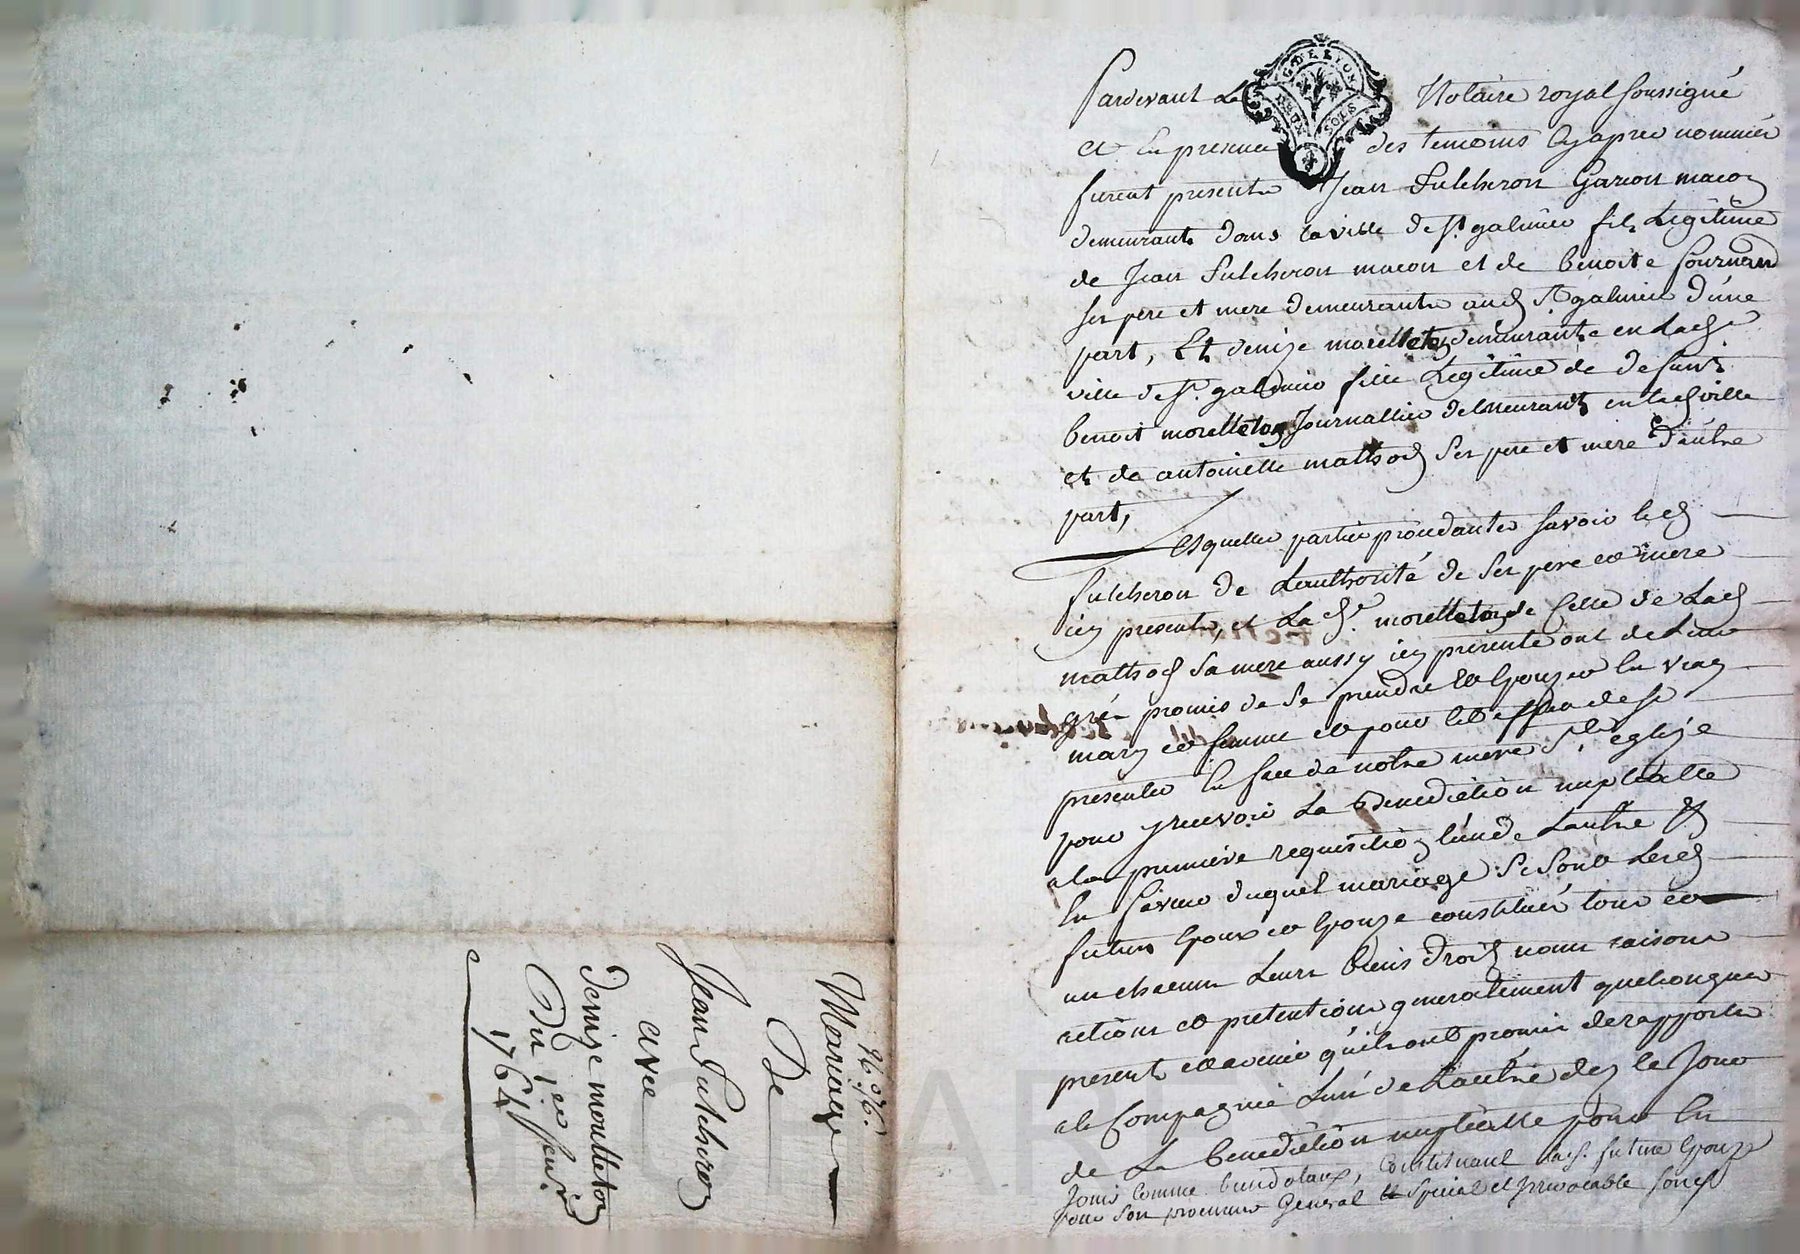 Pardevant Le Notaire royal soussigné
GEN. DE LYON
DEUX SOLS
et en presence des temoins cy apres nommés
furent presents Jean Fulcheron Garcon macon
demeurant dans la ville de St galmier fils Legitime
de Jean Fulcheron macon et de benoite fournand
ses pere et mere demeurants aud St galmier d'une
part, Et denize morelleton demeurante en Lade
ville de St. galmier fille Legitime de defunt
benoit morelleton Journallier demeurant en lad ville
et de antoinette mathod ses pere et mere d'autre
part,
Lesquelles parties procedantes savoir led
fulcheron de Lauthorité de ses pere et mere
icy presents, et Lade. morelleton de Celle de Lad
mathod sa mere aussy icy presente ont de Leur
gré promis de se prendre et Epouzer en vray
mary et femme et pour cet effet de se
presenter en face de notre mere Ste eglize
pour y recevoir La Benediction nuptialle
a la premiere requisition l'un de Lautre &
En faveur duquel mariage se sont Lesd
futurs Epoux et Epouze constitués tous et
un chacun Leurs biens droits noms raisons
actions et pretentions generalement quelconques
presents et avenir qu'ils ont promis de rapporter
a le Compagnie L'un de Lautre des le Jour
de La benediction nuptialle pour En
Jouir comme biens dotaux, Constituant lade. future Epouze
pour son procureur General et Special et Irrevocable sond
Mariage
De
Jean Fulcheron
avec
denize morelleton
Du
1764